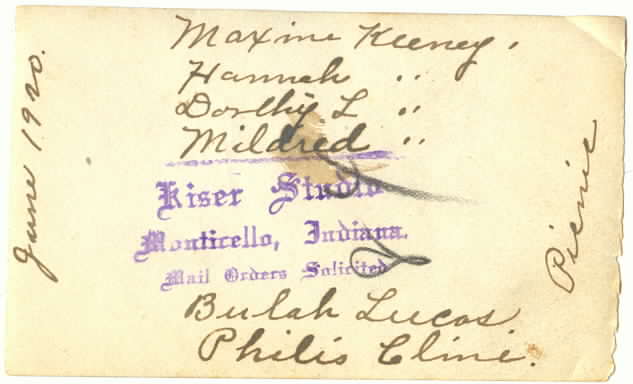 Maxine Keeney.
Hannah "
Dorthy L "
Mildred "
Kiser Studio
Monticello, Indiana.
Mail Orders Solicited
Bulah Lucas.
Philis Cline.
June 1920.
Picnic